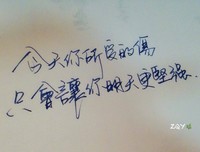 今天你所受的傷
只會讓你明天更堅強.
ZGY